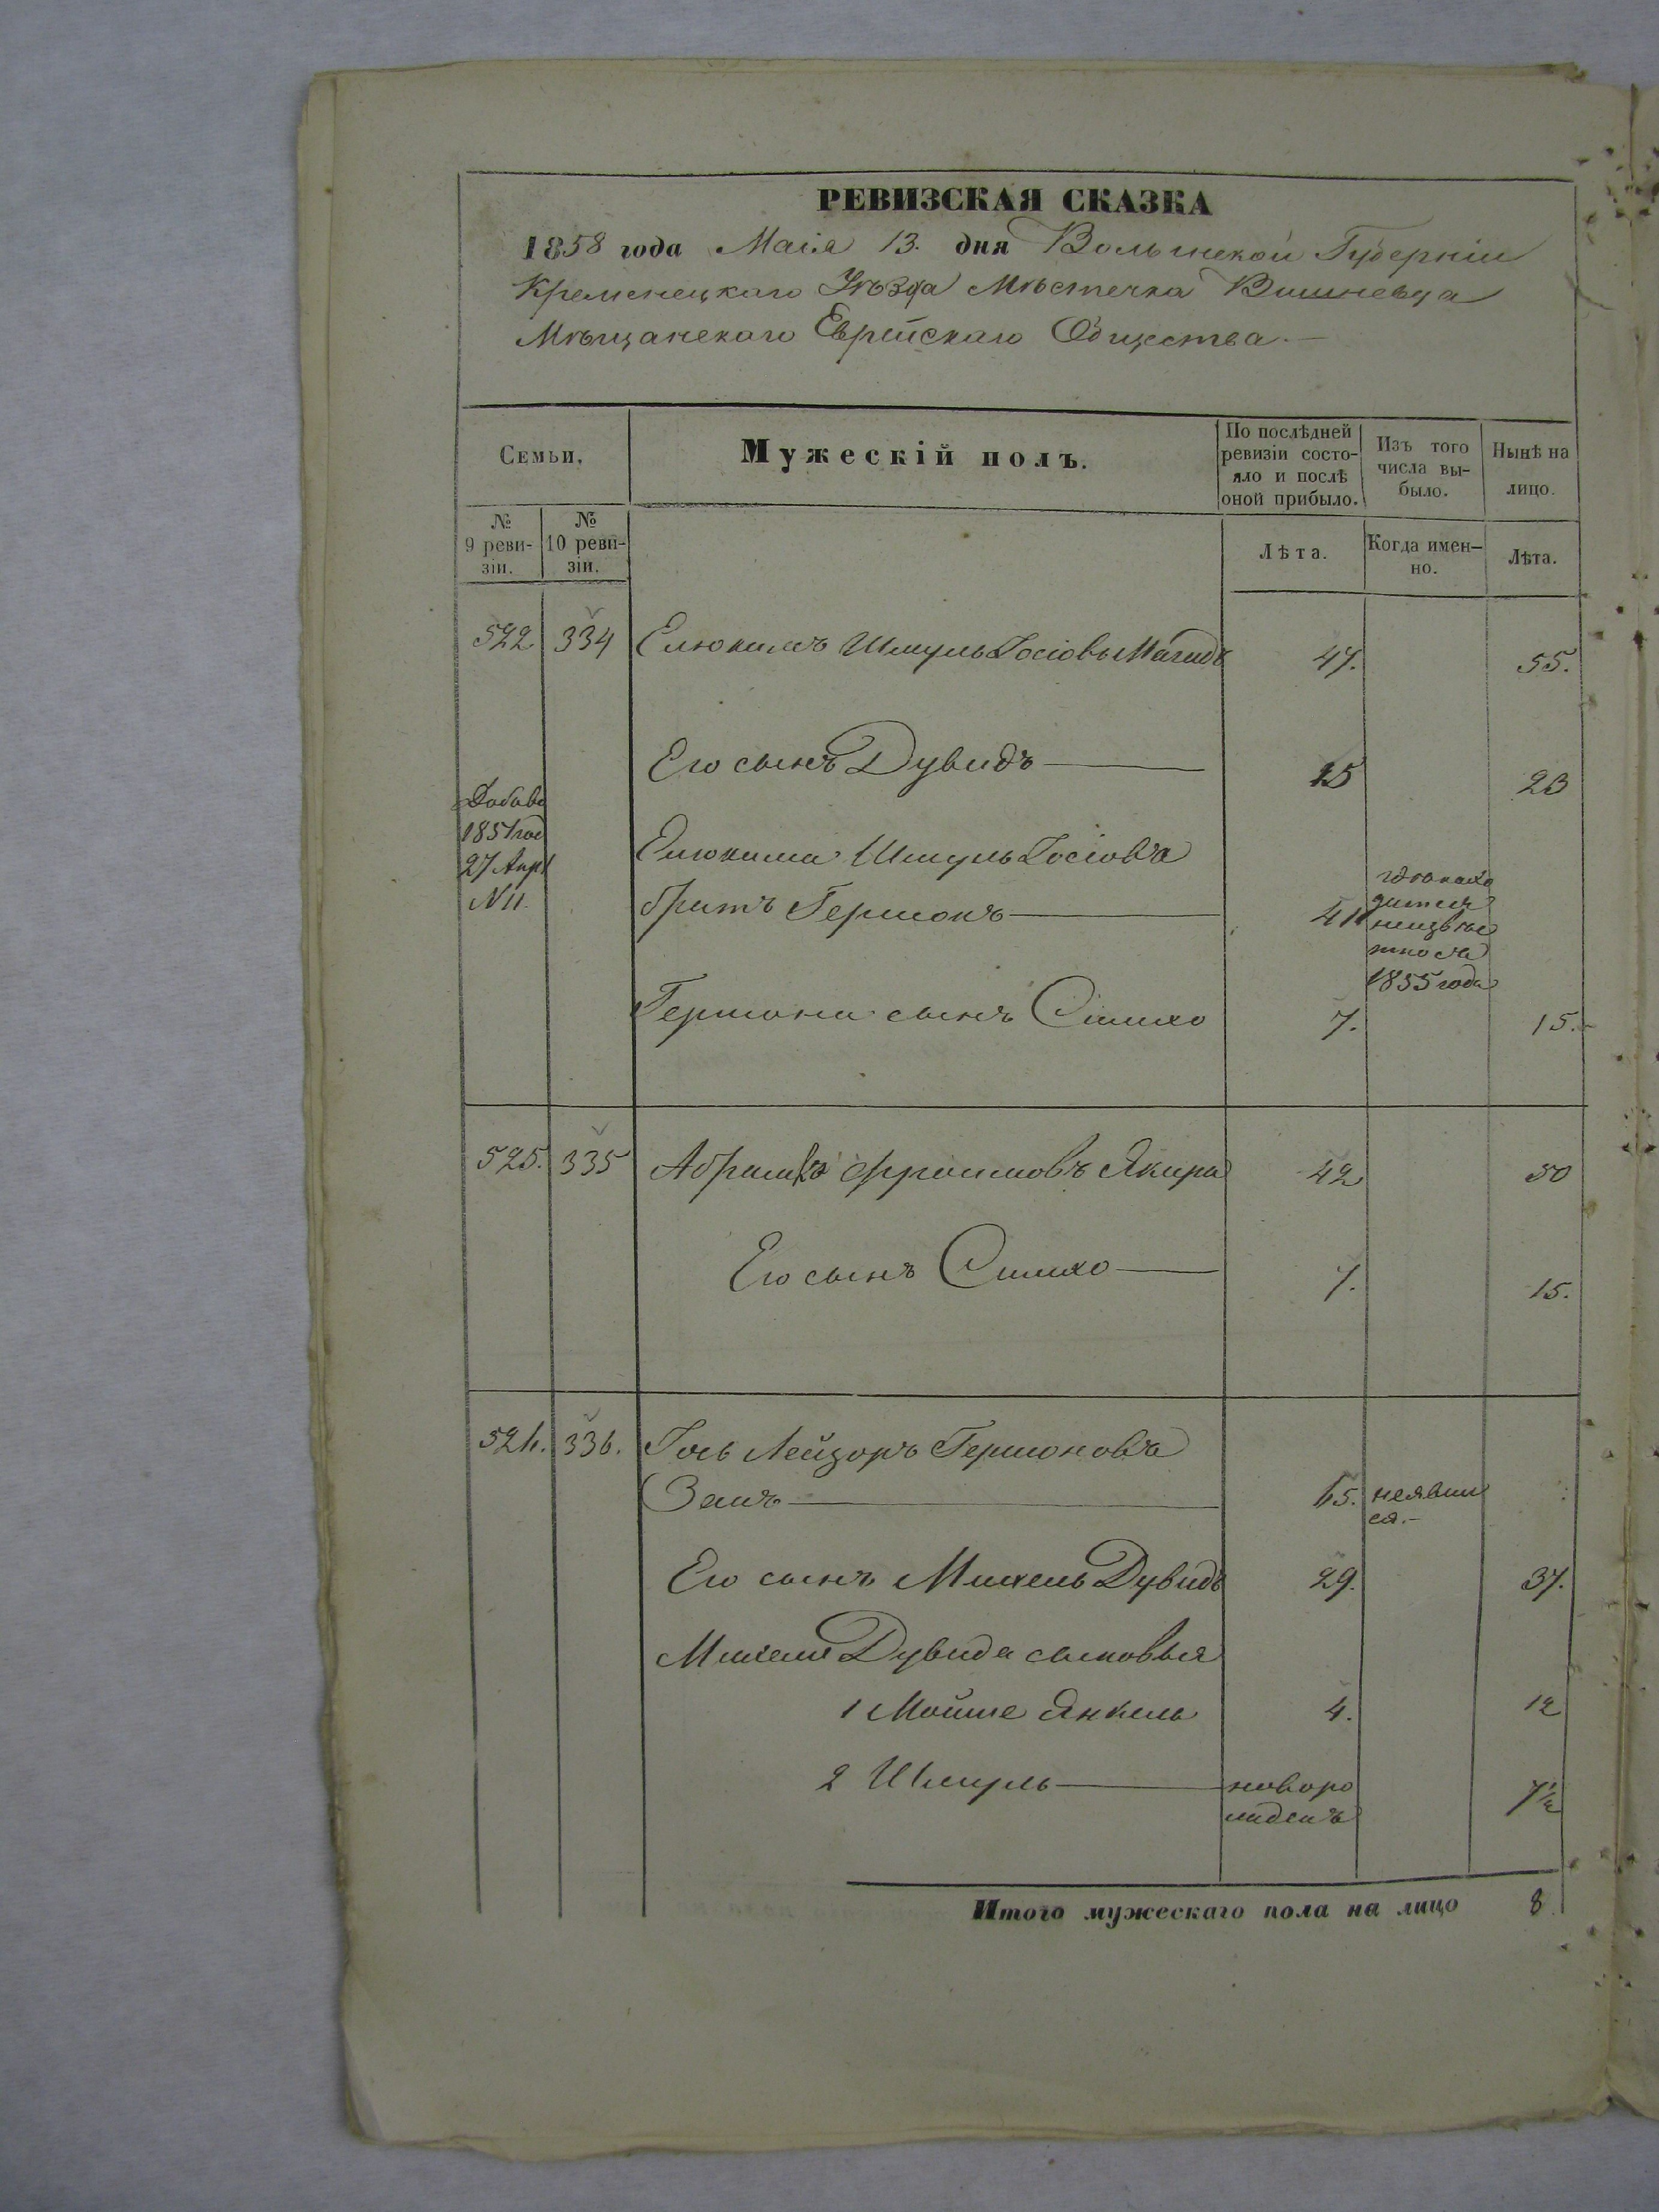 РЕВИЗСКАЯ СКАЗКА
1858 года Маія 13. дня Волынской Губерніи
Кременецкаго Уѣзда Мѣстечка Вишневца
Мѣщанскаго Еврейскаго Общества.
Семьи.
Мужескій полъ.
По послѣдней
ревизіи состо-
яло и послѣ
оной прибыло.
Изъ того
числа вы-
было.
Нынѣ на
лицо.
№
9 реви-
зіи.
№
10 реви-
зіи.
Лѣта.
Когда имен-
но.
Лѣта.
522 334 Елюкимъ Шмуль Іосіовъ Магидъ 47. 55.
Его сынъ Дувидъ 15 23
Добав
1851 год
27 Апр
N 11.
Елюкима Шмуль Іосіова
братъ Гершонъ 41
гдѣ нахо
дится
неизвѣс
тно съ
1855 года
Гершона сынъ Симхо 7. 15.
525. 335 Абрамъ Фроимовъ Якира 42 50
Его сынъ Симхо 7. 15.
524. 336. Іось Лейзоръ Гершоновъ
Закъ 65. неявил
ся.
Его сынъ Михель Дувидъ 29. 37.
Михеля Дувида сыновья
1 Мойше Янкель 4. 12
2 Шмуль новоро
жденъ 7½
Итого мужескаго пола на лицо 8